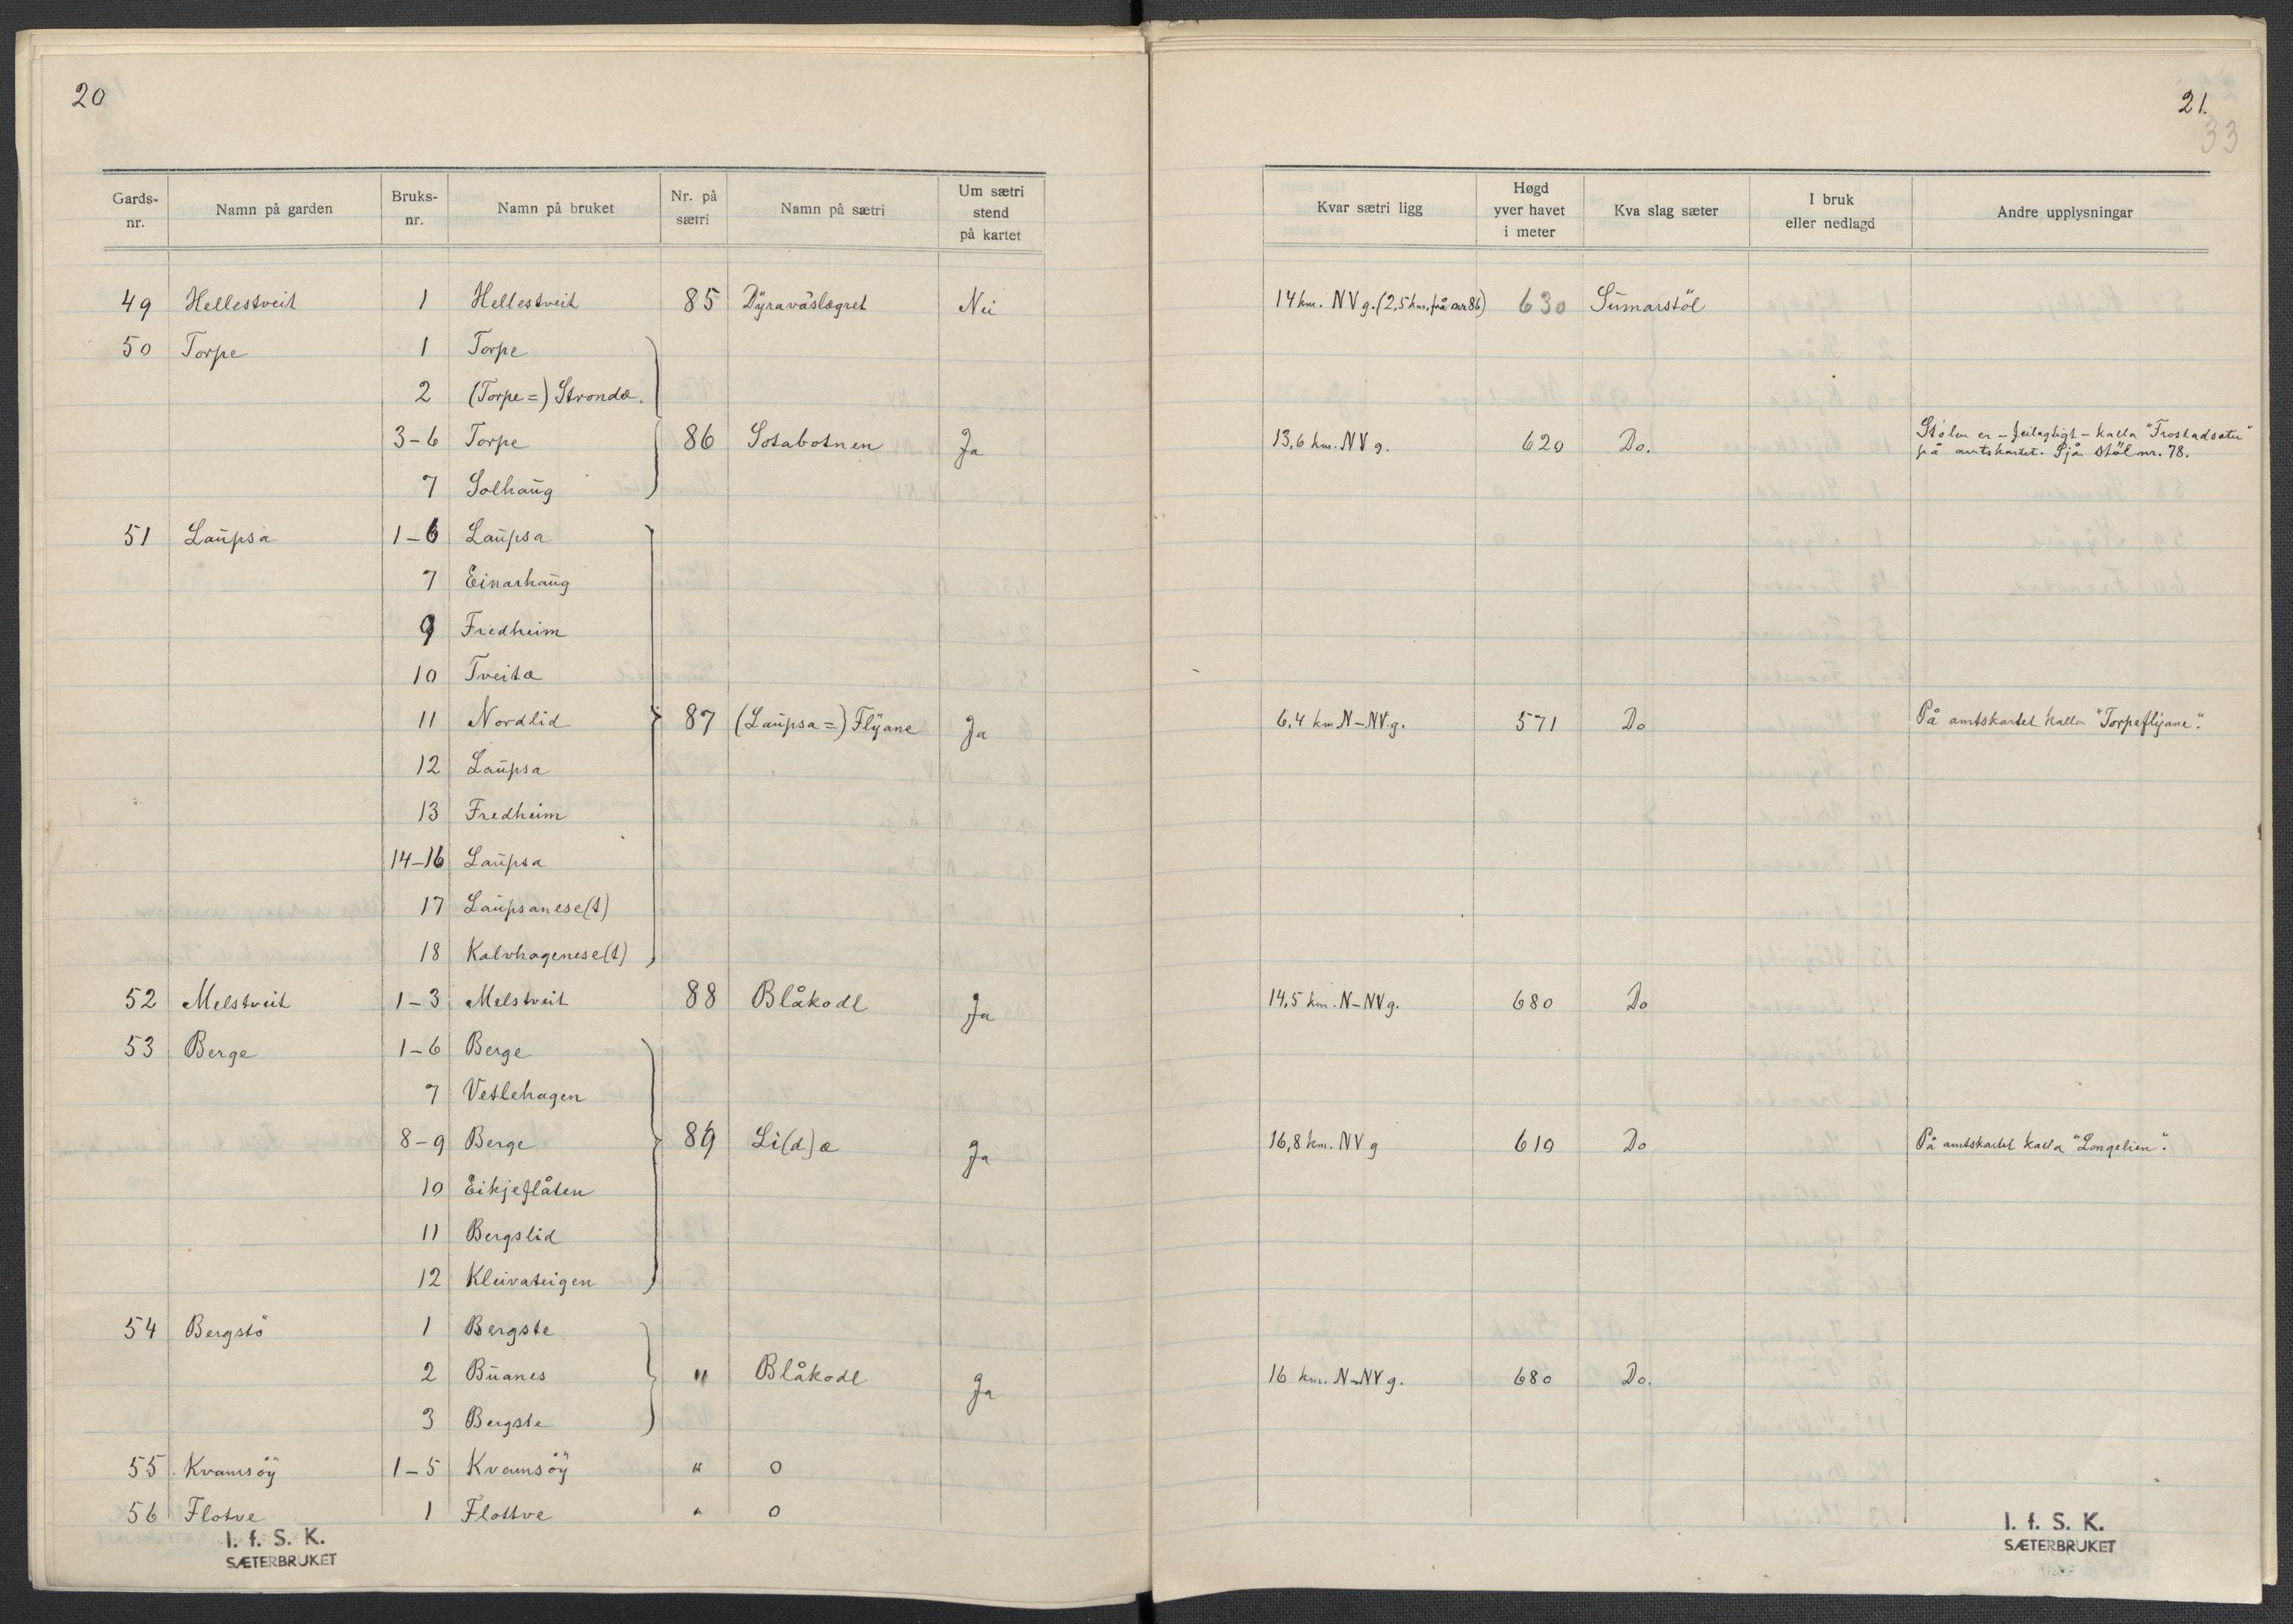 20
Gards-nr. Namn på garden Bruks-nr. Namn på bruket Nr. på sætri Namn på sætri Um sætri stend på kartet
49 Hellestveit 1 Hellestveit 85 Dyravåslægret Nei
50 Torpe 1 Torpe
2 (Torpe=) Stronda.
3-6 Torpe 86 Sotabotnen Ja
7 Solhaug
51 Laupsa 1-6 Laupsa
7 Einarhaug
9 Fredheim
10 Tveita
11 Nordlid 87 (Laupsa=) Flÿane Ja
12 Laupsa
13 Fredheim
14-16 Laupsa
17 Laupsanese(t)
18 Kalvhagenese(t)
52 Melstveit 1-3 Melstveit 88 Blåkodl Ja
53 Berge 1-6 Berge
7 Vetlehagen
8-9 Berge 89 Li(d)a Ja
10 Eikjeflåten
11 Bergslid
12 Kleivateigen
54 Bergstö 1 Bergste
2 Buanes " Blåkodl Ja
3 Bergste
55 Kvamsöÿ 1-5 Kvamsöÿ " 0
56 Flotve 1 Flottve " 0
I. f. S. K.
SÆTERBRUKET
21.
33
Kvar sætri ligg Høgd yver havet i meter Kva slag sæter I bruk eller nedlagd Andre upplysningar
14 km. NV g. (2,5 km. frå nr 86) 630 Sumarstöl
Stölen er - feilagtigt - kalla "Trostadsæter"
13,6 km. NV g. 620 Do. på amtskartet. Sjå stöl nr. 78.
6,4 km N-NV g. 571 Do På amtskartet kalla "Torpeflyane".
14,5 km. N-NV g. 680 Do
16,8 km. NV g 610 Do På amtskartet kalla "Longelien".
16 km. N-NV g. 680 Do.
I. f. S. K.
SÆTERBRUKET